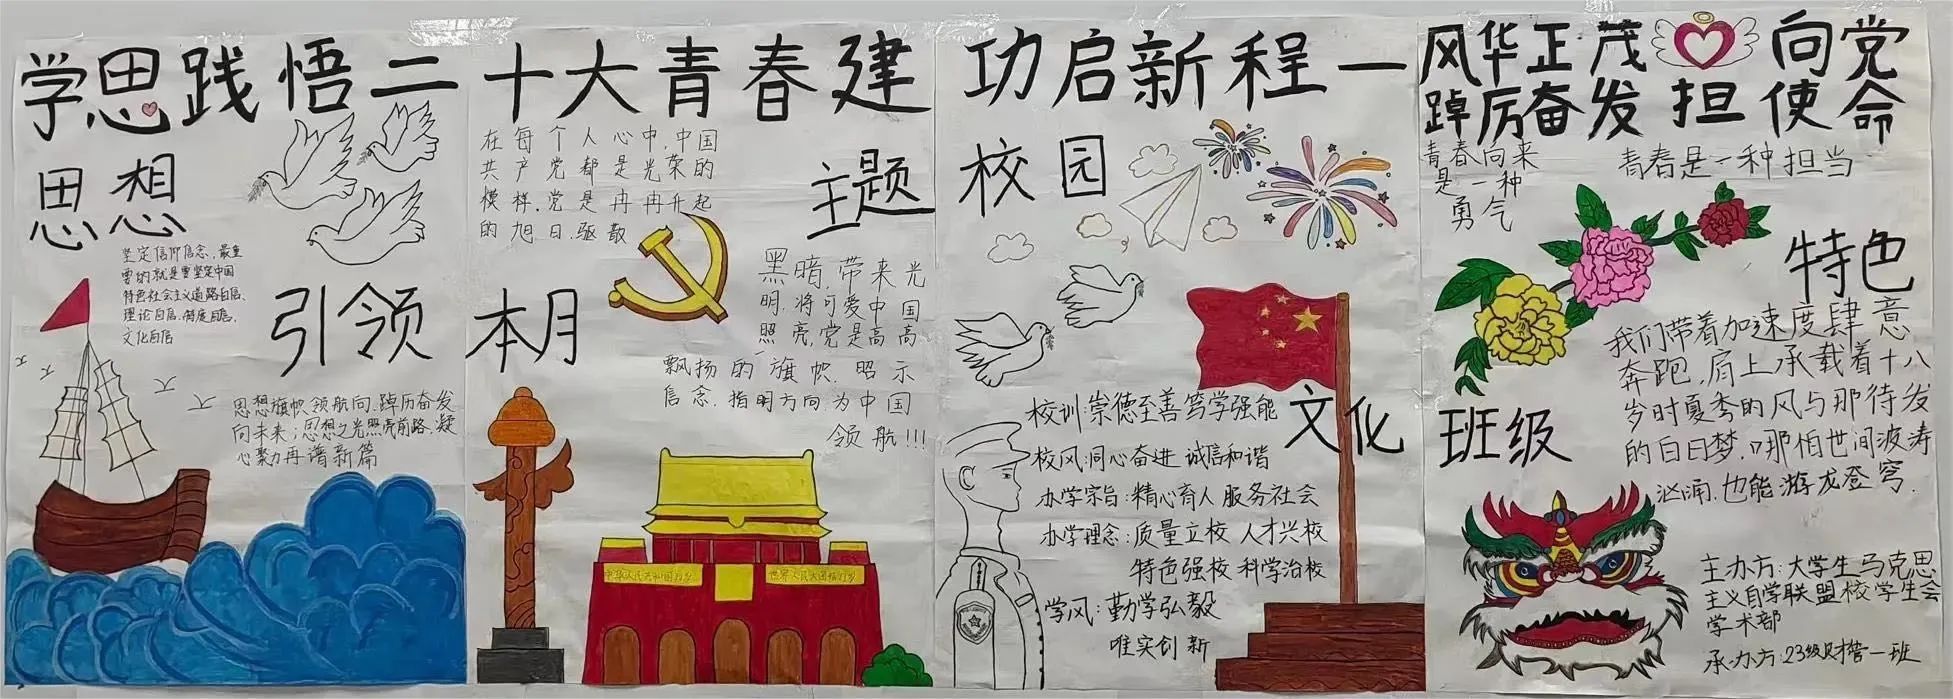 学思践悟二十大青春建功启新程一
风华正茂向党
踔厉奋发担使命
思想
引领
坚定信仰信念,最重
要的就是要坚定中国
特色社会主义道路自信、
理论自信、制度自信、
文化自信
思想旗帜领航向,踔厉奋发
向未来;思想之光照亮前路,凝
心聚力再谱新篇
本月
主题
在每个人心中,中国
共产党都是光荣的
模样,党是冉冉升起
的旭日,驱散
黑暗,带来光
明,将可爱中国
照亮,党是高高
飘扬的旗帜,昭示
信念,指明方向,为中国
领航!!!
中华人民共和国万岁
世界人民大团结万岁
校园
文化
校训:崇德至善 笃学强能
校风:同心奋进 诚信和谐
办学宗旨:精心育人 服务社会
办学理念:质量立校 人才兴校
特色强校 科学治校
学风:勤学弘毅
唯实创新
青春向来
是一种
勇气
青春是一种担当
特色
班级
我们带着加速度肆意
奔跑,肩上承载着十八
岁时夏季的风与那待发
的白日梦,哪怕世间波涛
汹涌,也能游龙登穹.
主办方:大学生马克思
主义自学联盟校学生会
学术部
承办方:23级财管一班